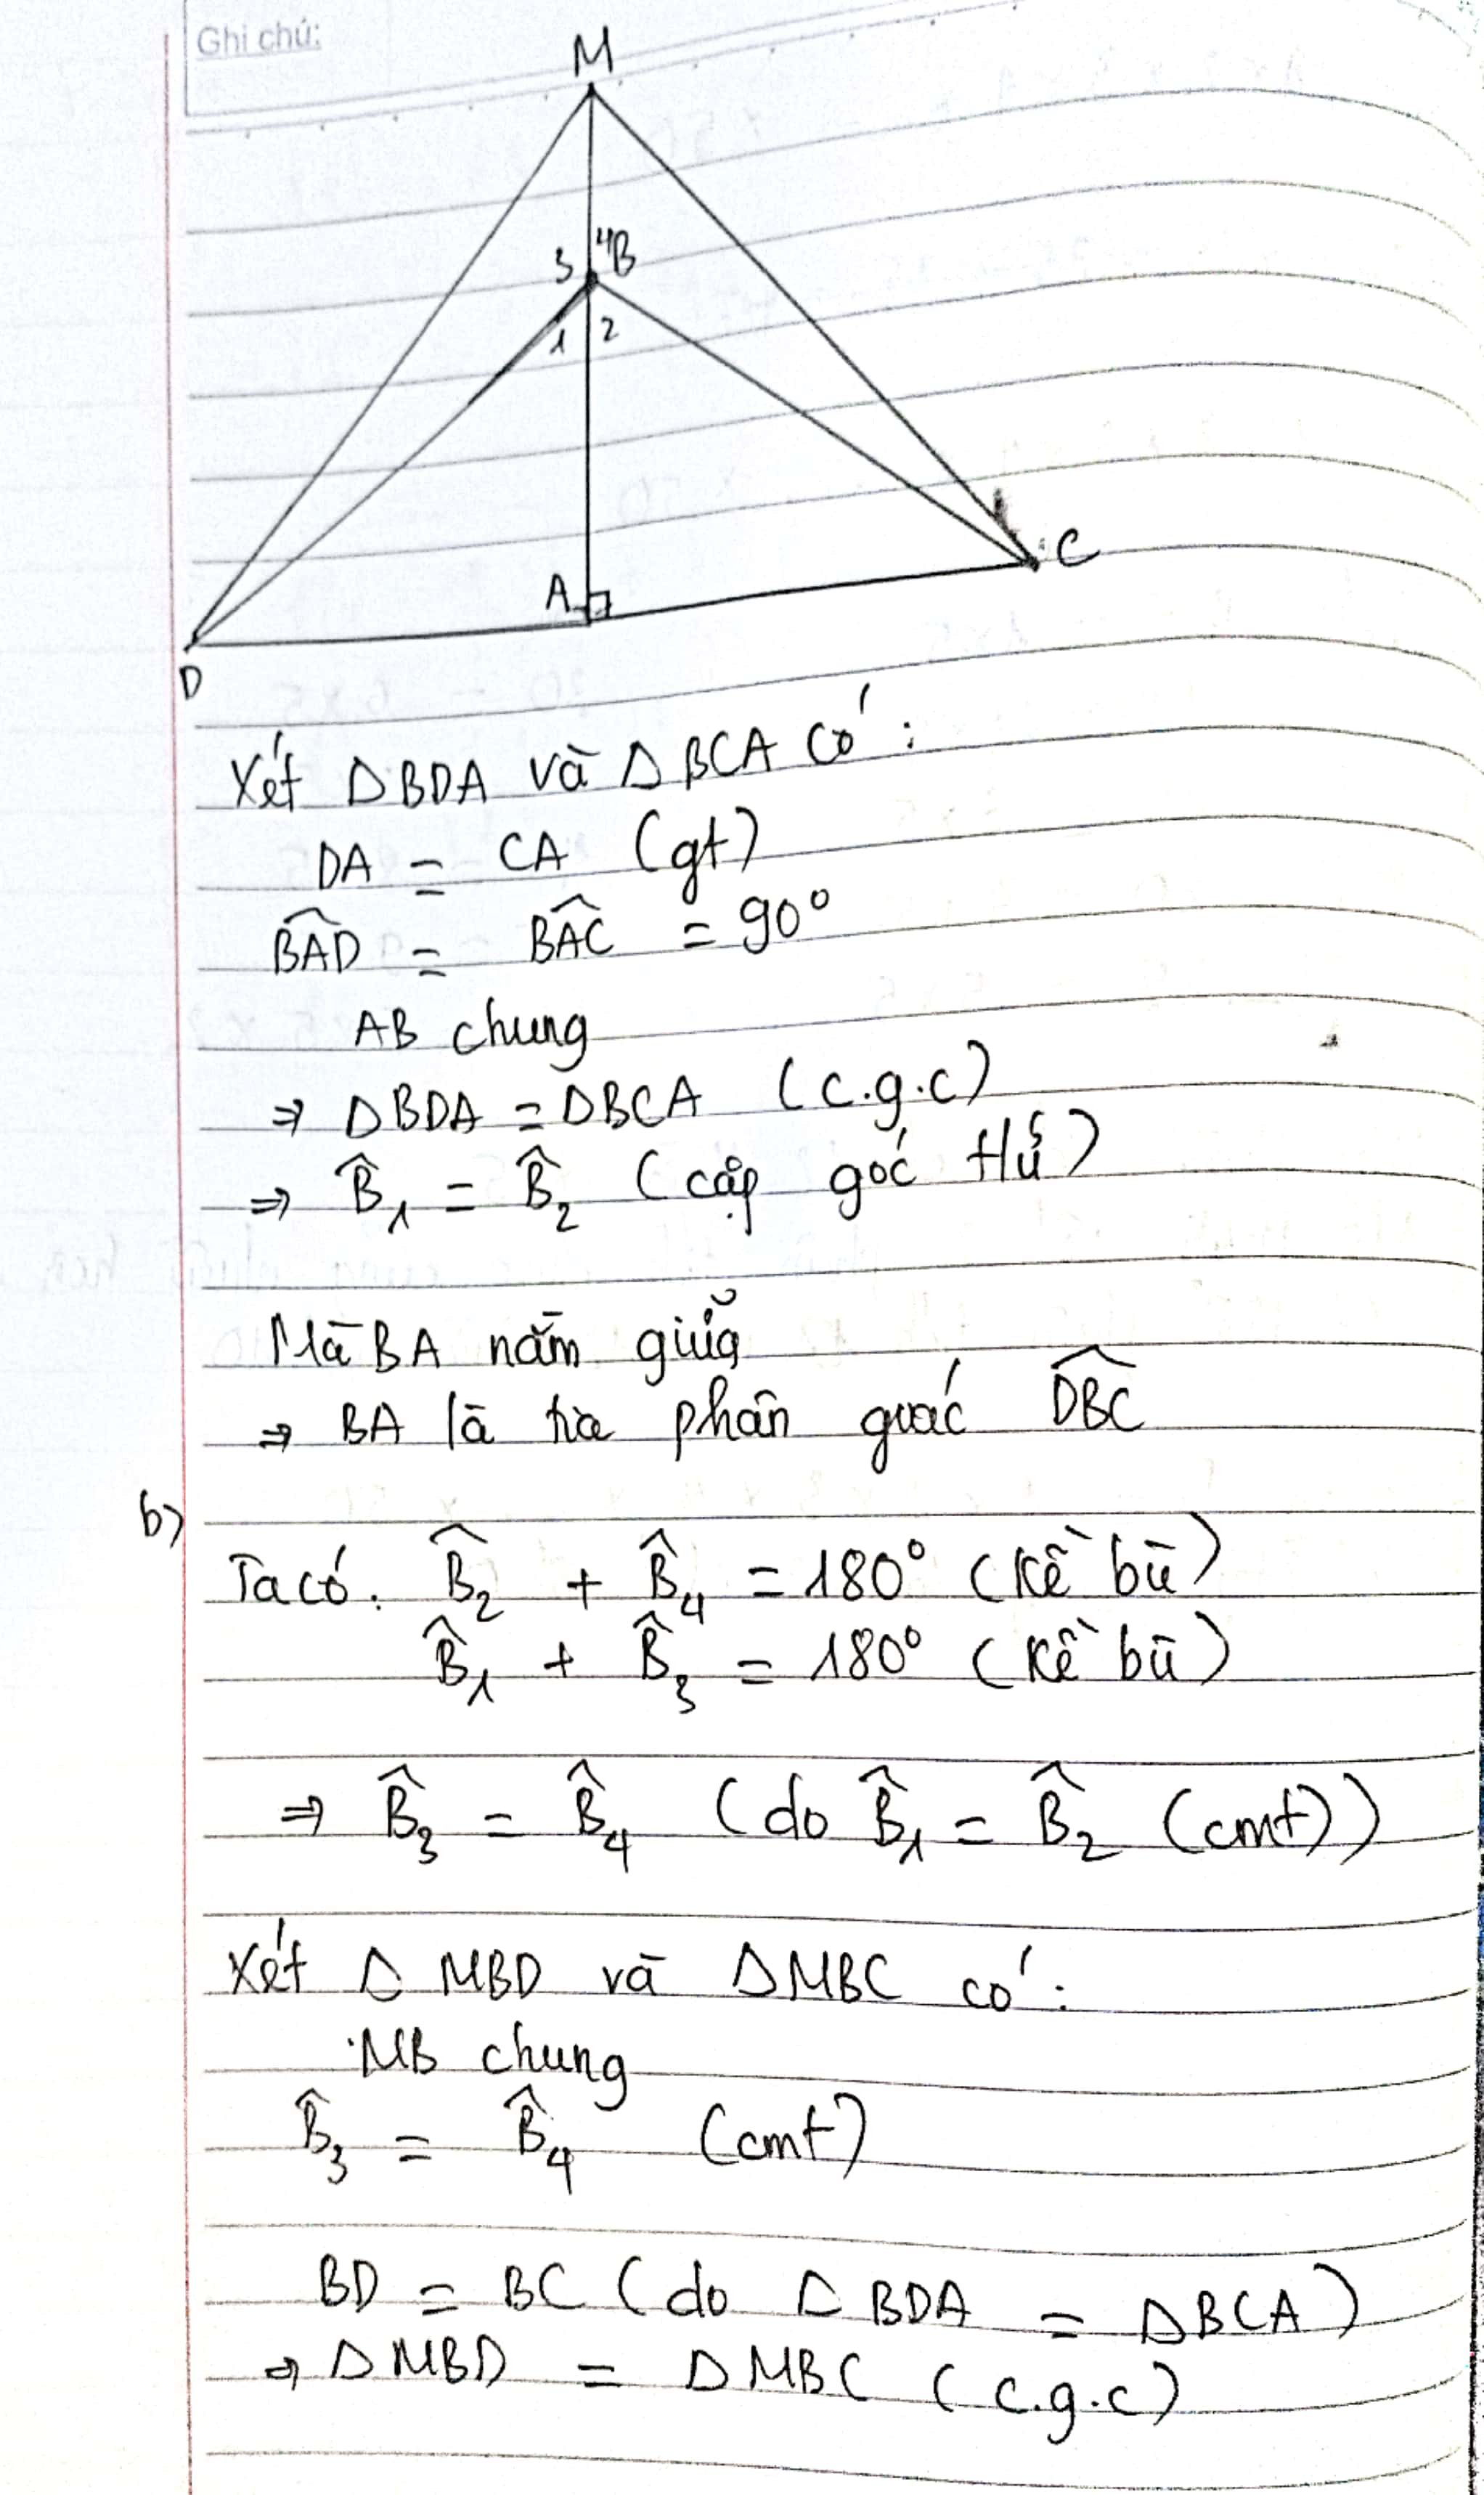 Ghi chú:
M
3 4 B
1 2
A
C
D
Xét ΔBDA và ΔBCA có:
DA = CA (gt)
$\widehat{BAD}$ = $\widehat{BAC}$ = 90°
AB chung
⇒ ΔBDA = ΔBCA (c.g.c)
⇒ $\hat{B}_1$ = $\hat{B}_2$ (cặp góc tứ)
Mà BA nằm giữa
⇒ BA là tia phân giác $\widehat{DBC}$
b)
Ta có: $\hat{B}_2$ + $\hat{B}_4$ = 180° (Kề bù)
$\hat{B}_1$ + $\hat{B}_3$ = 180° (Kề bù)
⇒ $\hat{B}_3$ = $\hat{B}_4$ (do $\hat{B}_1$ = $\hat{B}_2$ (cmt))
Xét Δ MBD và ΔMBC có:
MB chung
$\hat{B}_3$ = $\hat{B}_4$ (cmt)
BD = BC (do Δ BDA = ΔBCA)
⇒ ΔMBD = ΔMBC (c.g.c)